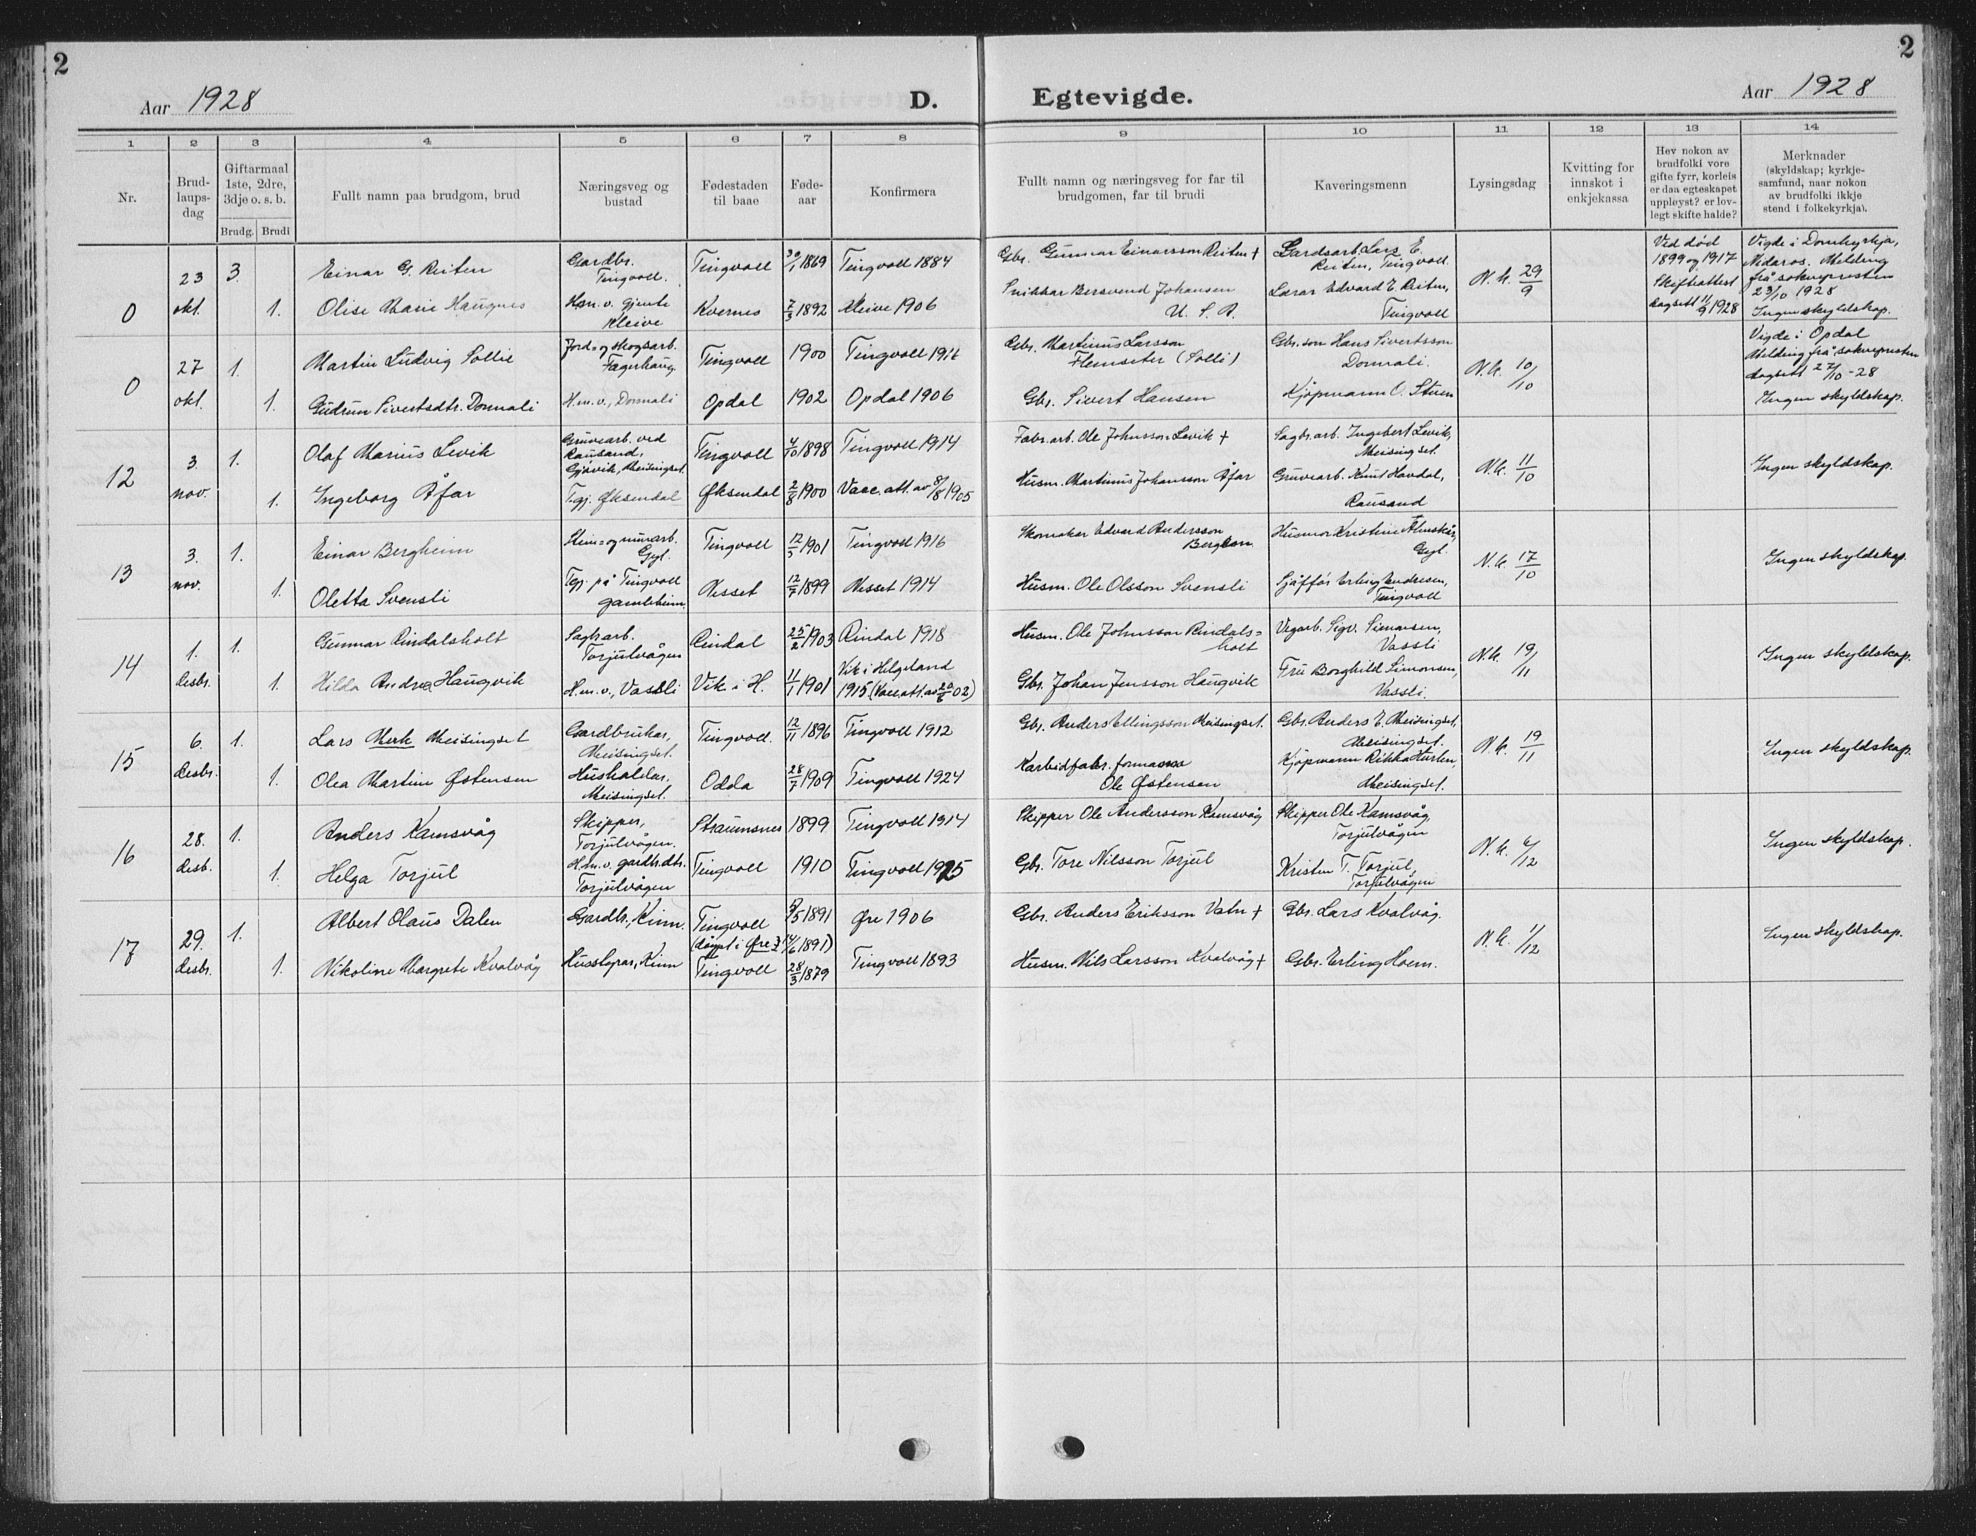 2
2
Aar 1928
D.
Egtevigde.
Aar 1928
1 2 3 4 5 6 7 8 9 10 11 12 13 14
Nr.
Brud-
laups-
dag
Giftarmaal
1ste, 2dre,
3dje o. s. b.
Brudg. Brudi
Fullt namn paa brudgom, brud
Næringsveg og
bustad
Fødestaden
til baae
Føde-
aar
Konfirmera
Fullt namn og næringsveg for far til
brudgomen, far til brudi
Kaveringsmenn
Lysingsdag
Kvitting for
innskot i
enkjekassa
Hev nokon av
brudfolki vore
gifte fyrr, korleis
er daa egteskapet
uppløyst? er lov-
legt skifte halde?
Merknader
(skyldskap; kyrkje-
samfund, naar nokon
av brudfolki ikkje
stend i folkekyrkja).
0
23 okt.
3.
Einar G. Reiten
Gardbr.
Tingvoll.
Tingvoll
30/1 1869
Tingvoll 1884
Gbr. Gunnar Einarsson Reiten +
Gardsarb. Lars E.
Reiten, Tingvoll
N.k. 29/9
Ved død
1899 og 1917
Skifteattest
dagsett 11/9 1928
Vigde i Domkyrkja,
Nidaros. Melding
frå soknepresten
23/10 1928
Ingen skyldskap.
1.
Olise Marie Haugnes
H.m.v. gjente
Kleive
Kvernes
7/3 1892
Kleive 1906
Snikkar Bersvend Johansen
U. S. A.
Lærar Edvard E. Reiten,
Tingvoll
0
27 okt.
1.
Martin Ludvig Sollie
Jord- og skogsarb.
Fagerhaug
Tingvoll
1900
Tingvoll 1916
Gbr. Martinus Larsson
Flemseter (Solli)
Gbr. son Hans Sivertsson
Donnali
N.k. 10/10
Vigde i Opdal
Melding frå soknepresten
dagsett 27/10-28
Ingen skyldskap.
1.
Gudrun Sivertsdtr. Donnali
H.m.v., Donnali
Opdal
1902
Opdal 1906
Gbr. Sivert Hansen
Kjøpmann O. Stuen
12
3. nov.
1.
Olaf Marius Levik
Gruvearb. ved
Rausand,
Gjøvik, Meisingset.
Tingvoll
4/10 1898
Tingvoll 1914
Fabr.arb. Ole Johnsson Levik +
Sagbr.arb. Ingebert Levik,
Meisingset.
N.k. 11/10
Ingen skyldskap.
1.
Ingeborg Åfar
Tgj. Øksendal
Øksendal
2/8 1900
Vacc.att. av 8/8 1905
Husm. Martinus Johansson Åfar
Gruvearb. Knut Havdal,
Rausand
13
3. nov.
1.
Einar Bergheim
Stein- og murarb.
Gyl.
Tingvoll
12/5 1901
Tingvoll 1916
Skomaker Edvard Andersson
Husmor Kristine Ålmskår,
Gyl
N.k. 17/10
Ingen skyldskap.
1.
Oletta Svensli
Tgj. på Tingvoll
gamleheim
Nesset
12/7 1899
Nesset 1914
Husm. Ole Olsson Svensli
Sjåffør Erling Endresen,
Tingvoll
14
1. desbr.
1.
Gunnar Rindalsholt
Sagbr.arb.
Torjulvågen
Rindal
25/2 1903
Rindal 1918
Husm. Ole Johnsson Rindals=
holt
Vegarb. Sigv. Simonsen,
Vassli
N.k. 19/11
Ingen skyldskap.
1.
Hilda Andrea Haugvik
H.m.v., Vassli
Vik i H.
11/1 1901
Vik i Helgeland
1915 (Vacc.att. av 20/6 02)
Gbr. Johan Jensson Haugvik
Fru Borghild Simonsen,
Vassli.
15
6. desbr.
1.
Lars Merk Meisingset
Gardbrukar,
Meisingset.
Tingvoll.
12/11 1896
Tingvoll 1912
Gbr. Anders Ellingsson Meisingset.
Gbr. Anders E. Meisingset,
Meisingset.
N.k. 19/11
Ingen skyldskap.
1.
Olea Martine Østensen
Hushaldar,
Meisingset.
Odda
28/7 1909
Tingvoll 1924
Karbidfabr. formann
Ole Østensen
Kjøpmann Rikka
Meisingset.
16
28. desb.
1.
Anders Kamsvåg
Skipper,
Torjulvågen.
Straumsnes
1899
Tingvoll 1914
Skipper Ole Andersson Kamsvåg
Skipper Ole Kamsvåg,
Torjulvågen
N.k. 6/12
Ingen skyldskap.
1.
Helga Torjul
H.m.v. gardbr.dtr.
Torjulvågen
Tingvoll
1910
Tingvoll 1925
Gbr. Tore Nilsson Torjul
Kristen T. Torjul,
Torjulvågen
17
29. desbr.
1.
Albert Olaus Dalen
Gardbr., Kinn.
Tingvoll
(døypt i Øre 14/6 1891)
9/5 1891
Øre 1906
Gbr. Anders Eriksson Vatn +
Gbr. Lars Kvalvåg.
N.k. 1/12
Ingen skyldskap.
1.
Nikoline Margrete Kvalvåg
Husstyrar, Kinn
Tingvoll
28/3 1879
Tingvoll 1893
Husm. Nils Larsson Kvalvåg +
Gbr. Erling Hoem.